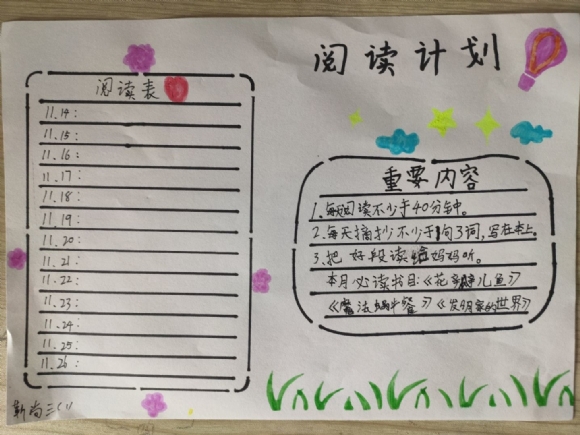 阅读计划
阅读表
11.14：
11.15：
11.16：
11.17：
11.18：
11.19：
11.20：
11.21：
11.22：
11.23：
11.24：
11.25：
11.26：
重要内容
1、每阅读不少于40分钟。
2、每天摘抄不少于1句3词，写在本上。
3、把好段读给妈妈听。
本月必读书目：《花 儿鱼》
《魔法蜗牛 》《发明家的世界》
三